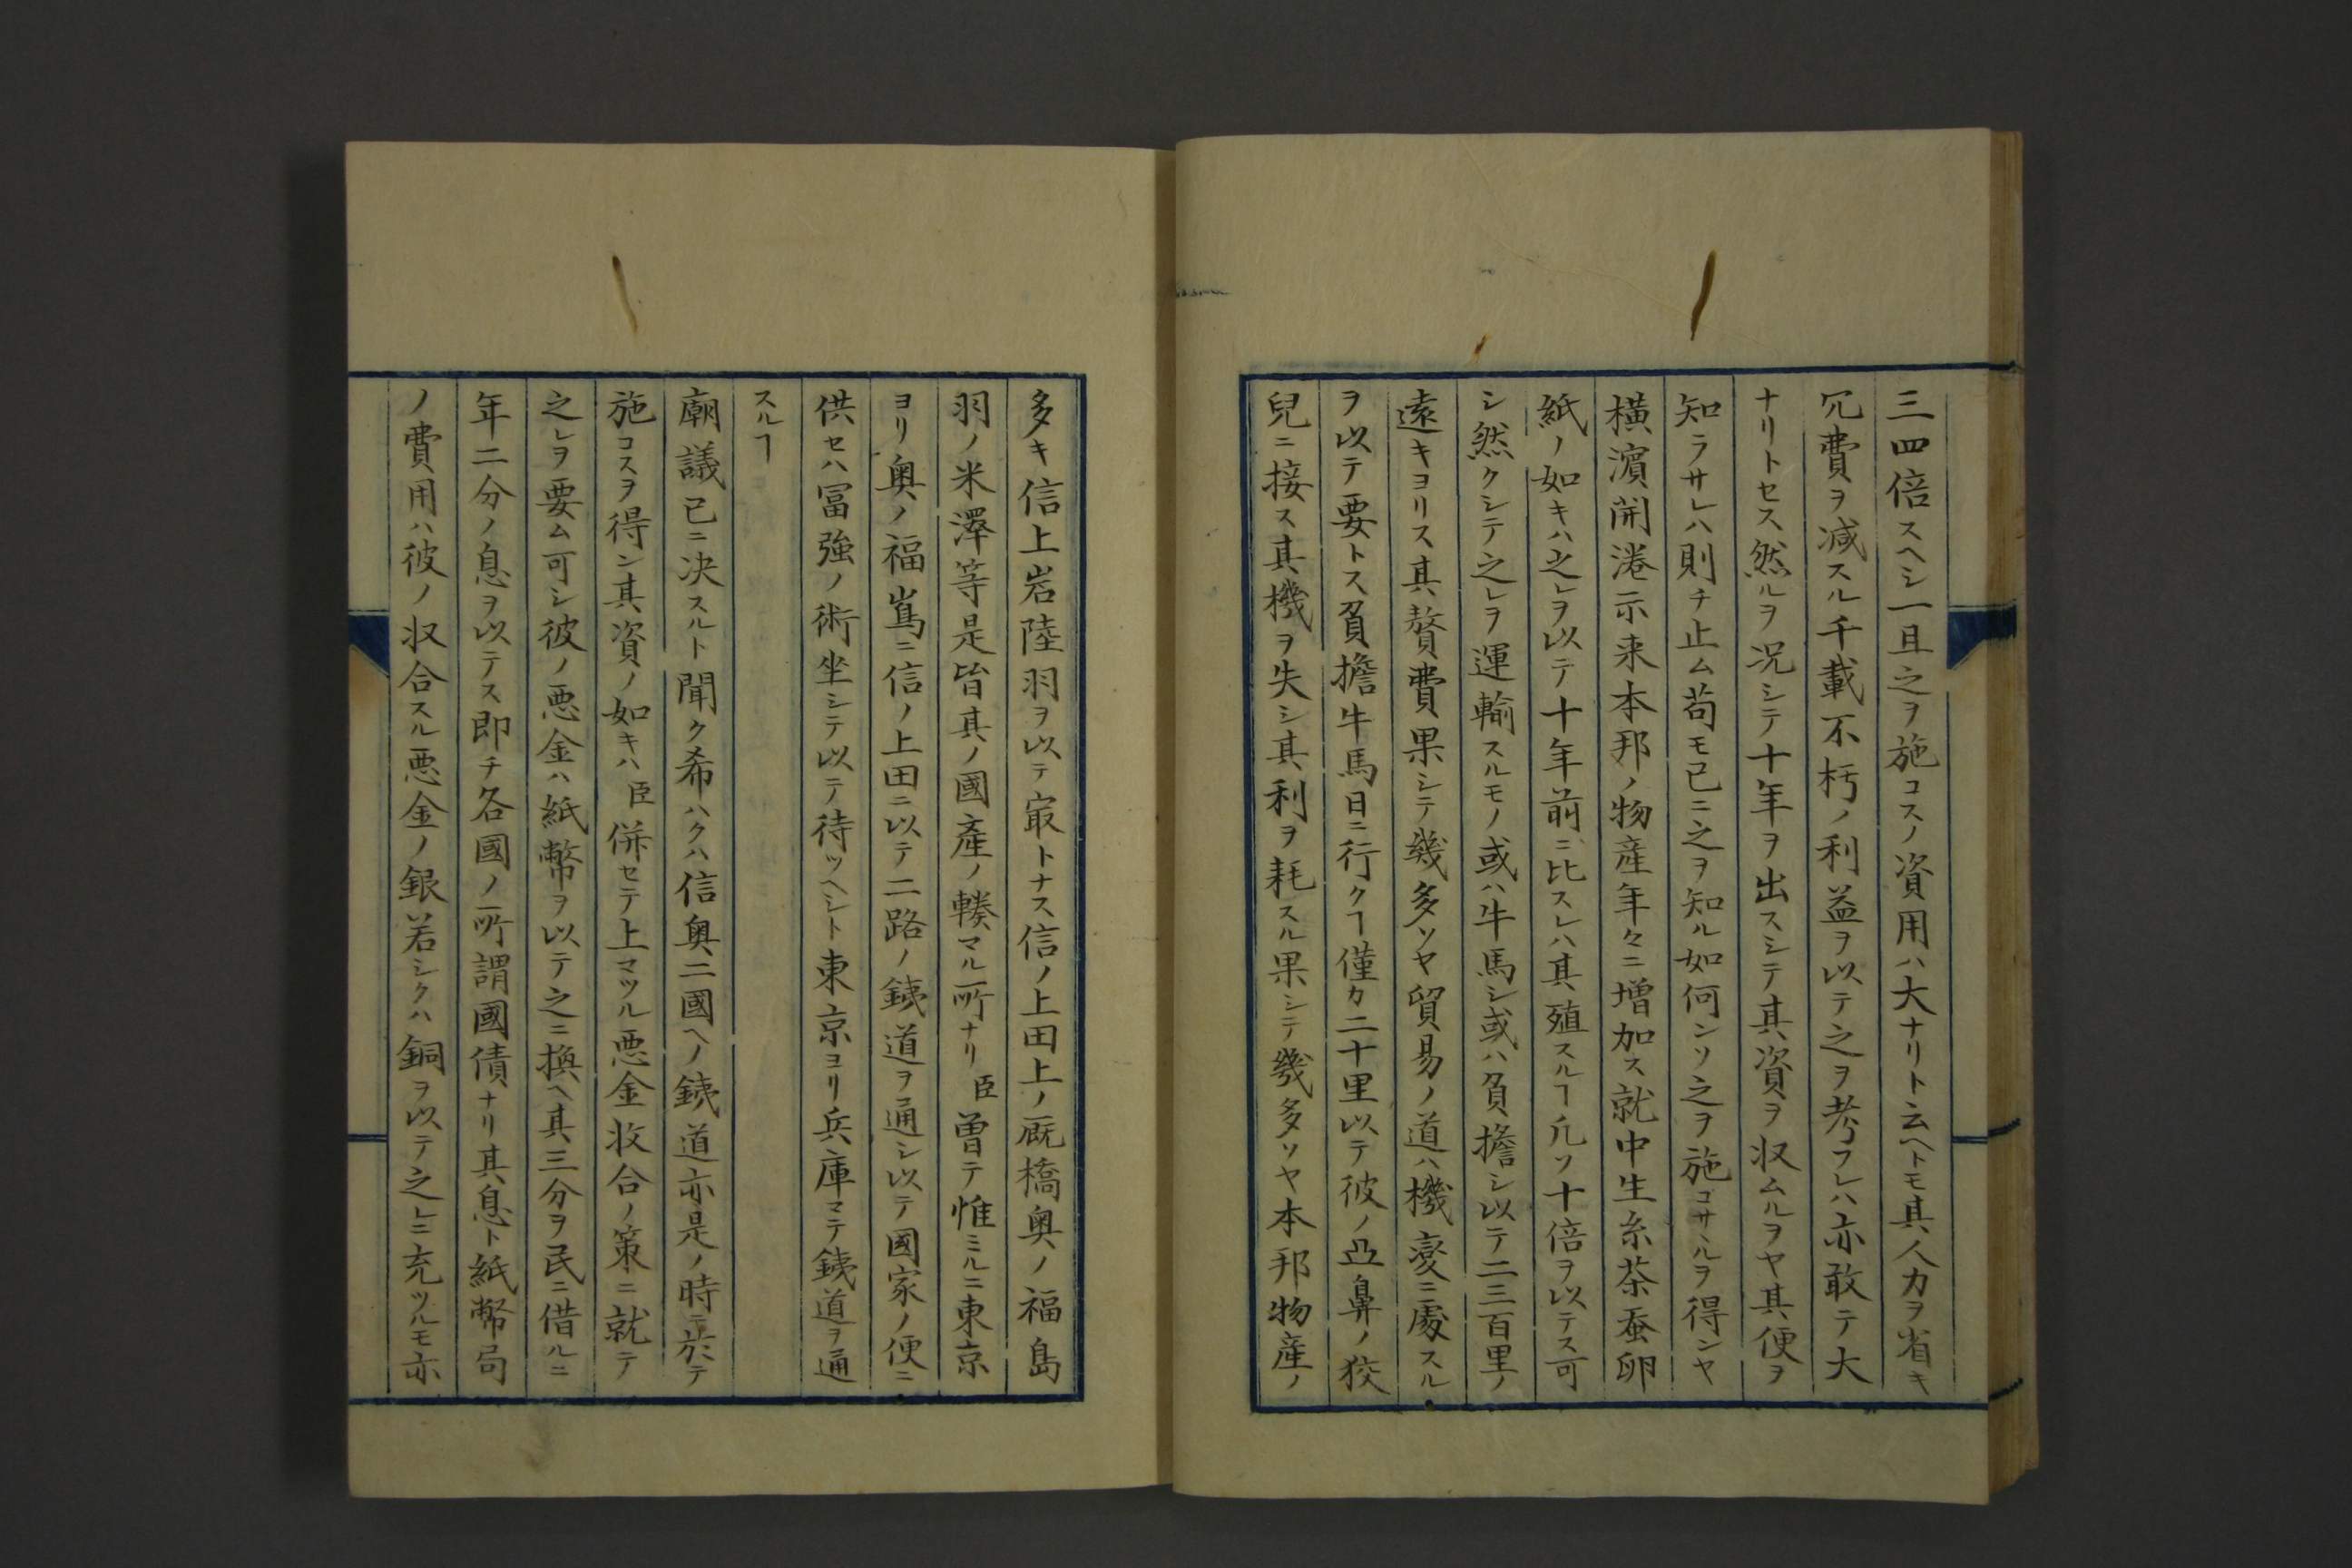 三四倍スヘシ一旦之ヲ施コスノ資用ハ大ナリト云ヘトモ其人力ヲ省キ
冗費ヲ减スル千載不朽ノ利益ヲ以テ之ヲ考フレハ亦敢テ大
ナリトセス然ルヲ况シテ十年ヲ出スシテ其資ヲ収ムルヲヤ其便ヲ
知ラサレハ則チ止ム苟モ已ニ之ヲ知ル如何ンソ之ヲ施コサヽルヲ得ンヤ
横濱開港示来本邦ノ物産年々ニ増加ス就中生糸茶蚕卵
紙ノ如キハ之レヲ以テ十年前ニ比スレハ其殖スルヿ凢ソ十倍ヲ以テス可
シ然クシテ之レヲ運輸スルモノ或ハ牛馬シ或ハ負擔シ以テ二三百里ノ
遠キヨリス其贅費果シテ幾多ソヤ貿易ノ道ハ機変ニ處スル
ヲ以テ要トス負擔牛馬日ニ行クヿ僅カ二十里以テ彼ノ亞鼻ノ狡
兒ニ接ス其機ヲ失シ其利ヲ耗スル果シテ幾多ソヤ本邦物産ノ
多キ信上岩陸羽ヲ以テ冣トナス信ノ上田上ノ厩橋奥ノ福島
羽ノ米澤等是皆其ノ國産ノ輳マル所ナリ臣曽テ惟ミルニ東京
ヨリ奥ノ福嶌ニ信ノ上田ニ以テ二路ノ銕道ヲ通シ以テ國家ノ便ニ
供セハ冨強ノ術坐シテ以テ待ツヘシト東京ヨリ兵庫マテ銕道ヲ通
スルヿ
廟議已ニ决スルト聞ク希ハクハ信奥二國ヘノ銕道亦是ノ時ニ於テ
施コスヲ得ン其資ノ如キハ臣併セテ上マツル悪金收合ノ策ニ就テ
之レヲ要ム可シ彼ノ悪金ハ紙幣ヲ以テ之ニ換ヘ其三分ヲ民ニ借ルニ
年二分ノ息ヲ以テス即チ各國ノ所謂國債ナリ其息ト紙幣局
ノ費用ハ彼ノ収合スル悪金ノ銀若シクハ銅ヲ以テ之レニ充ツルモ亦